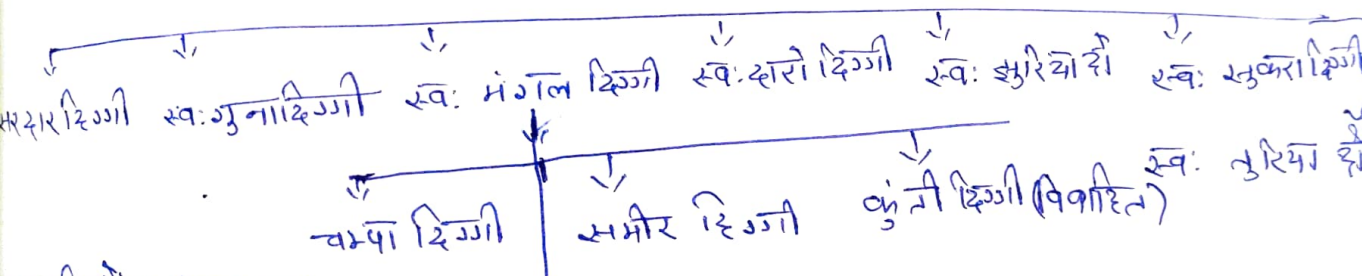 सरदार दिग्गी स्वः गुना दिग्गी स्वः मंगल दिग्गी स्वः दारो दिग्गी स्वः झुरियो दी स्वः सुकरा दिग्गी
स्वः तुरिया
चम्पा दिग्गी समीर दिग्गी कुंती दिग्गी (विवाहित)